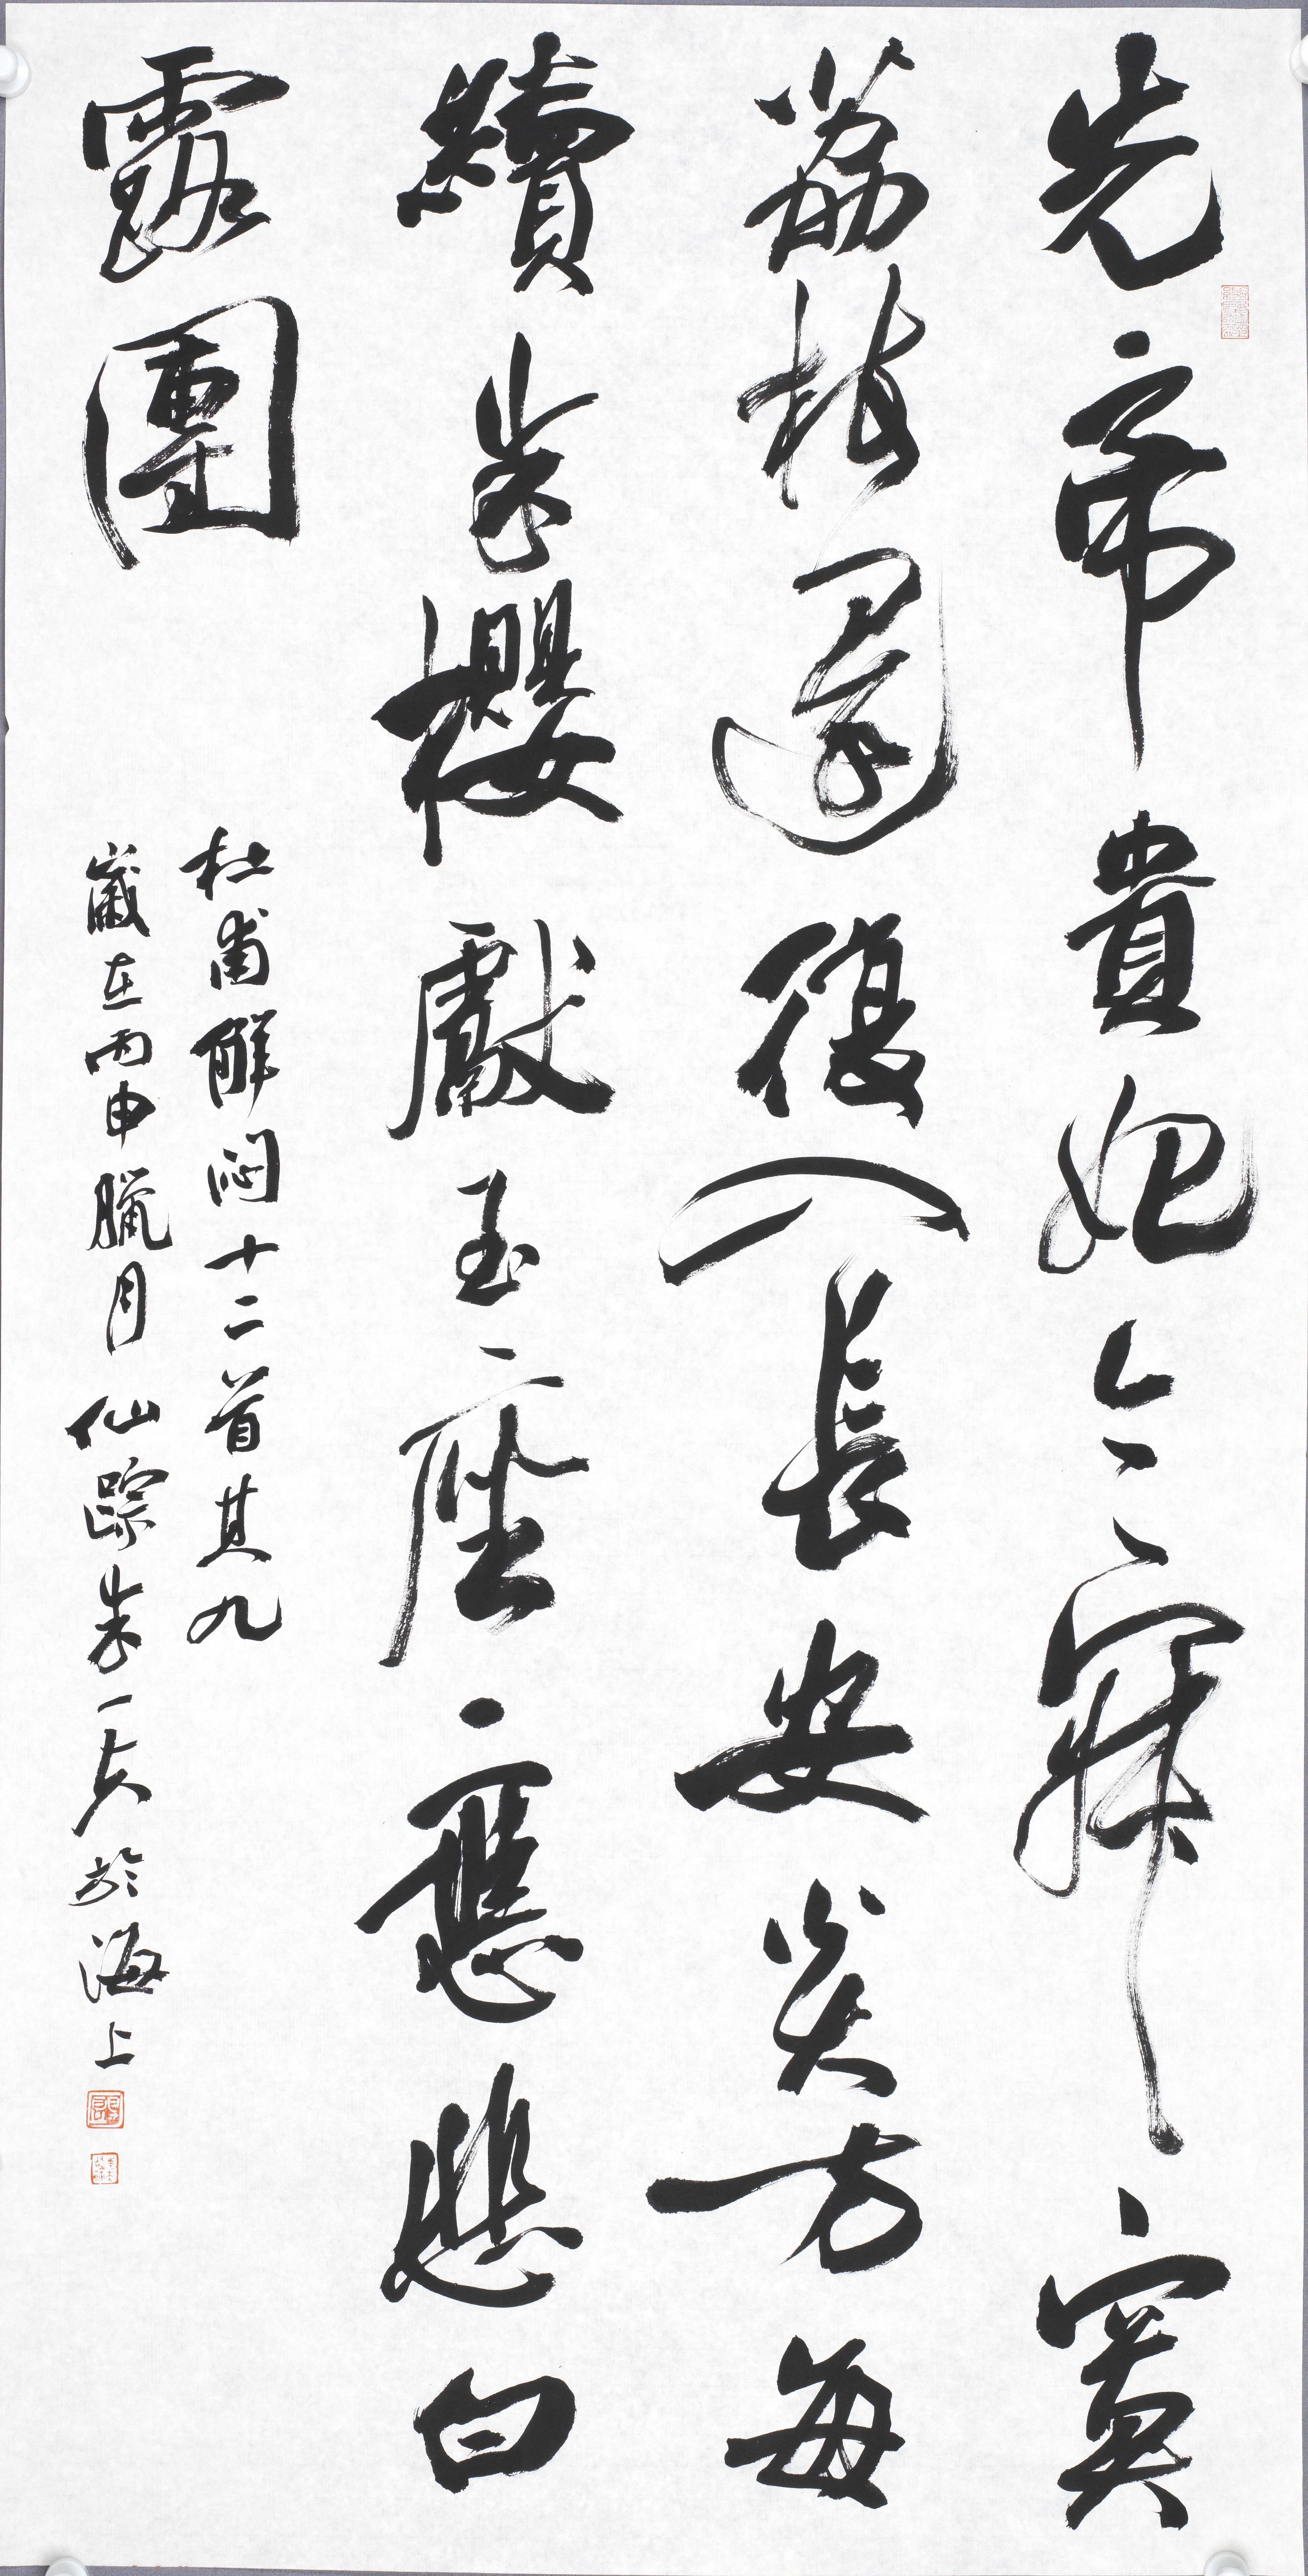 先帝貴妃今寂寞
荔枝還復入長安炎方每
續朱櫻獻玉座應悲白
露團
杜甫解闷十二首其九
歲在丙申臘月仙踪朱一於海上